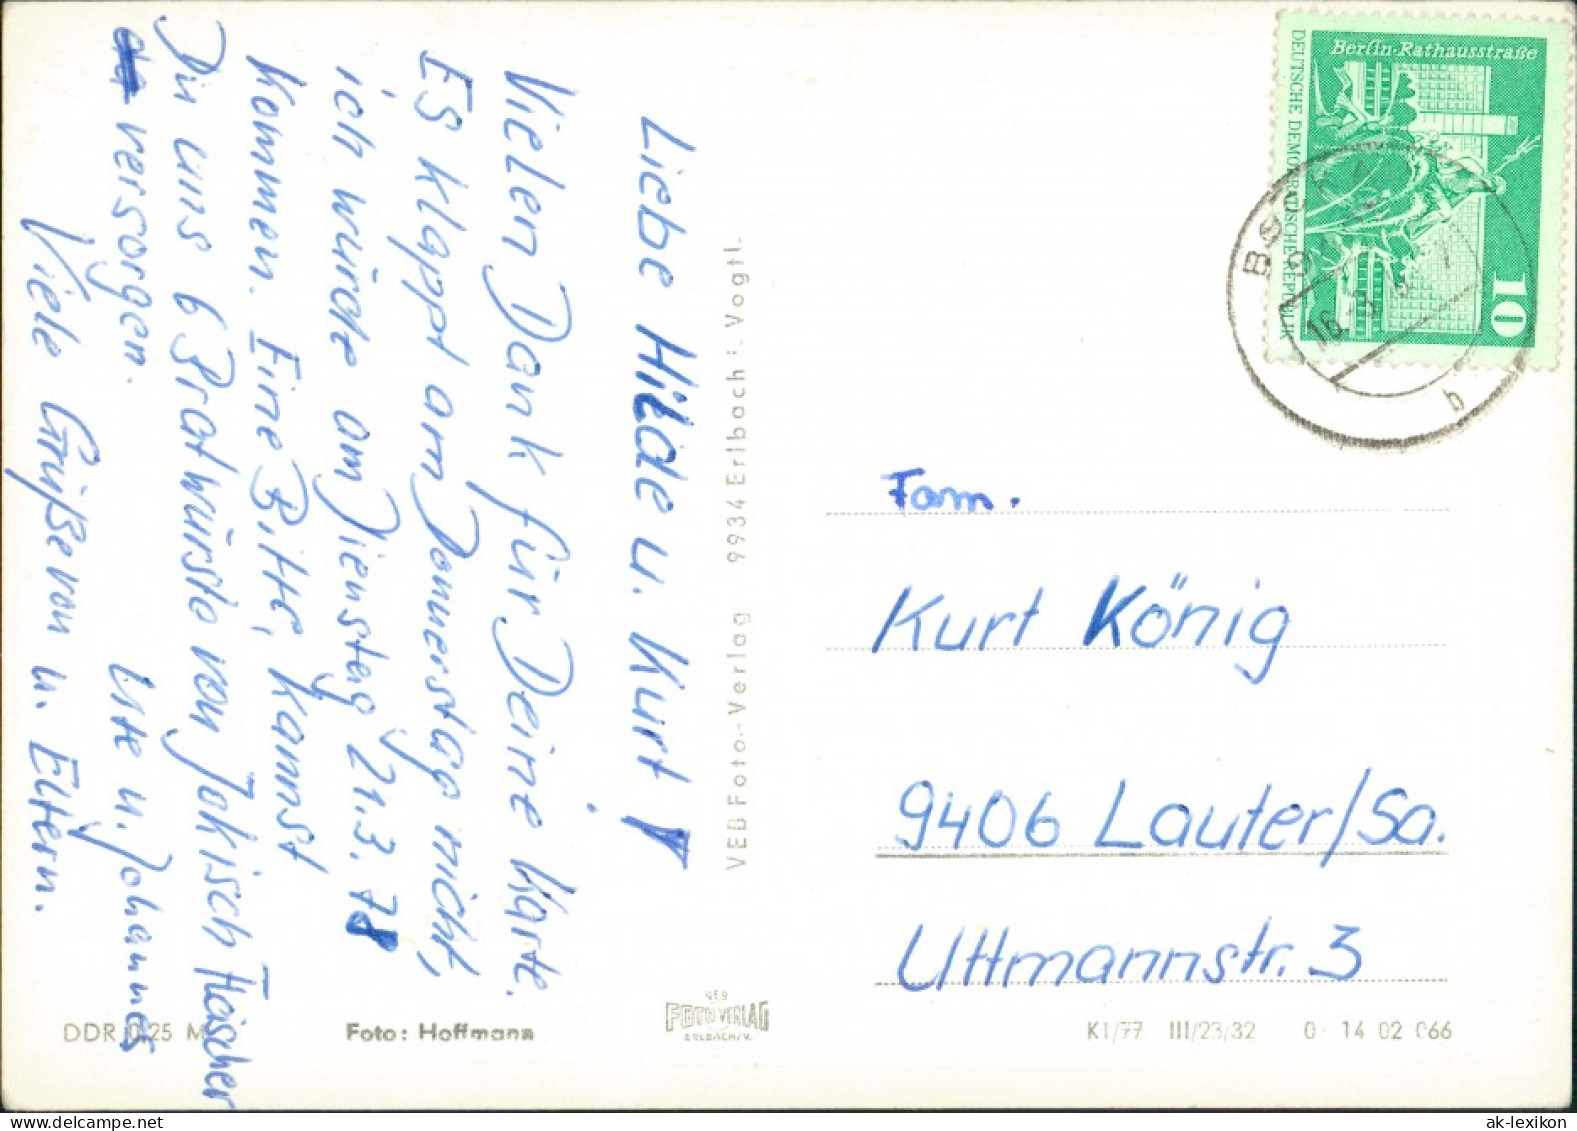 Liebe Hilde u. Kurt!
Vielen Dank für Deine Karte.
Es klappt am Donnerstag nicht,
ich würde am Dienstag 21.3.78
kommen. Eine Bitte, kannst
Du uns 6 Bratwürste von Jokisch Fleischer
versorgen.
Viele Grüße von Ute u. Johannes
u. Eltern.
VEB Foto-Verlag 9934 Erlbach i. Vogtl.
DDR 0,25 M
Foto: Hoffmann
VEB
FOTO VERLAG
ERLBACH/V.
K1/77 III/23/32 14 02 066
Berlin-Rathausstraße
DEUTSCHE DEMOKRATISCHE REPUBLIK
10
16.
b
Fam.
Kurt König
9406 Lauter/Sa.
Uttmannstr. 3
ak-lexikon